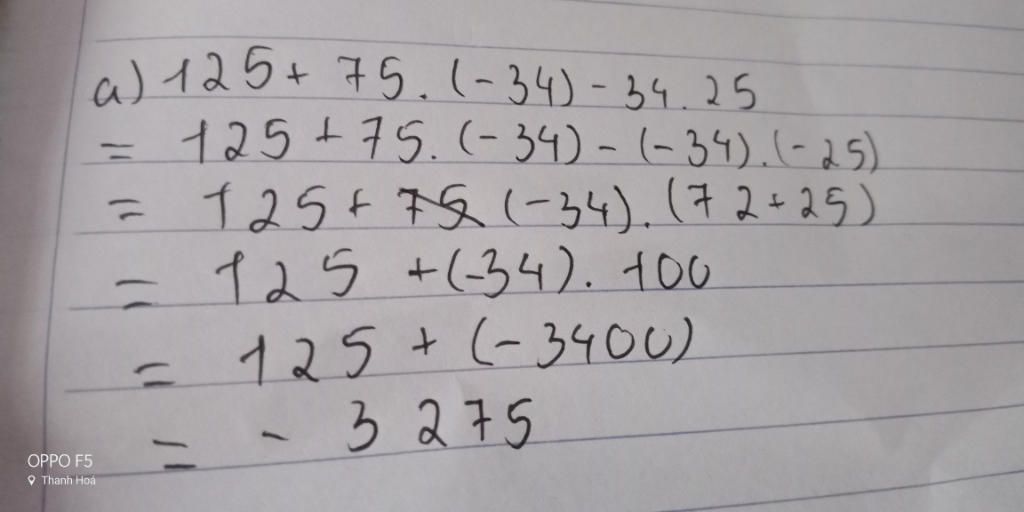 a) 125 + 75. (-34) - 34. 25
= 125 + 75. (-34) - (-34). (-25)
= 125 + (-34). (72 + 25)
= 125 + (-34). 100
= 125 + (-3400)
= - 3 275
OPPO F5
Thanh Hoá